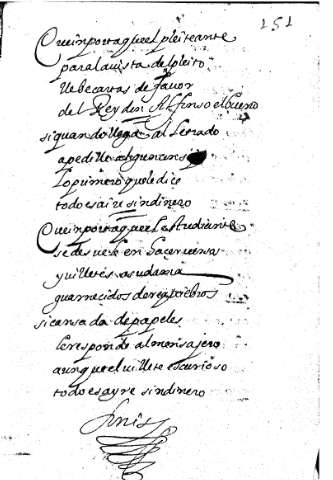 151
Que ynporta que el pleiteante
para la vista del pleito
llebe cartas de fauor
del Rey don Alfonso el bueno
si quando llega al Letrado
a pedille
lo primero que le dice
todo es aire sin dinero
Que ynporta que el estudiante
se desuele en hacer versos
y villetes a su dama
guarnecidos de requiebros
si cansada de papeles
le responde al mensajero
aunque el villete es curioso
todo es ayre sin dinero
finis